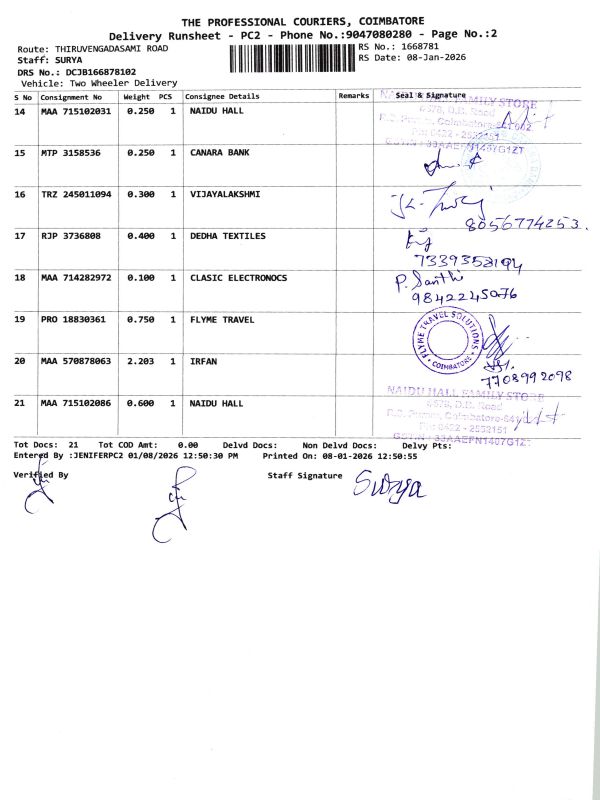 THE PROFESSIONAL COURIERS, COIMBATORE
Delivery Runsheet - PC2 - Phone No.:9047080280 - Page No.:2
Route: THIRUVENGADASAMI ROAD
RS No.: 1668781
Staff: SURYA
RS Date: 08-Jan-2026
DRS No.: DCJB166878102
Vehicle: Two Wheeler Delivery
S No Consignment No Weight PCS Consignee Details Remarks Seal & Signature
14 MAA 715102031 0.250 1 NAIDU HALL
NAIDU HALL FAMILY STORE
15 MTP 3158536 0.250 1 CANARA BANK
16 TRZ 245011094 0.300 1 VIJAYALAKSHMI
8056774253.
17 RJP 3736808 0.400 1 DEDHA TEXTILES
18 MAA 714282972 0.100 1 CLASIC ELECTRONOCS
P. Santhi
9842245076
19 PRO 18830361 0.750 1 FLYME TRAVEL
FLYME TRAVEL SOLUTIONS
COIMBATORE
20 MAA 570878063 2.203 1 IRFAN
7708992098
21 MAA 715102086 0.600 1 NAIDU HALL
NAIDU HALL FAMILY STORE
Tot Docs: 21 Tot COD Amt: 0.00 Delvd Docs: Non Delvd Docs: Delvy Pts:
Entered By :JENIFERPC2 01/08/2026 12:50:30 PM Printed On: 08-01-2026 12:50:55
Verified By
Staff Signature
Surya